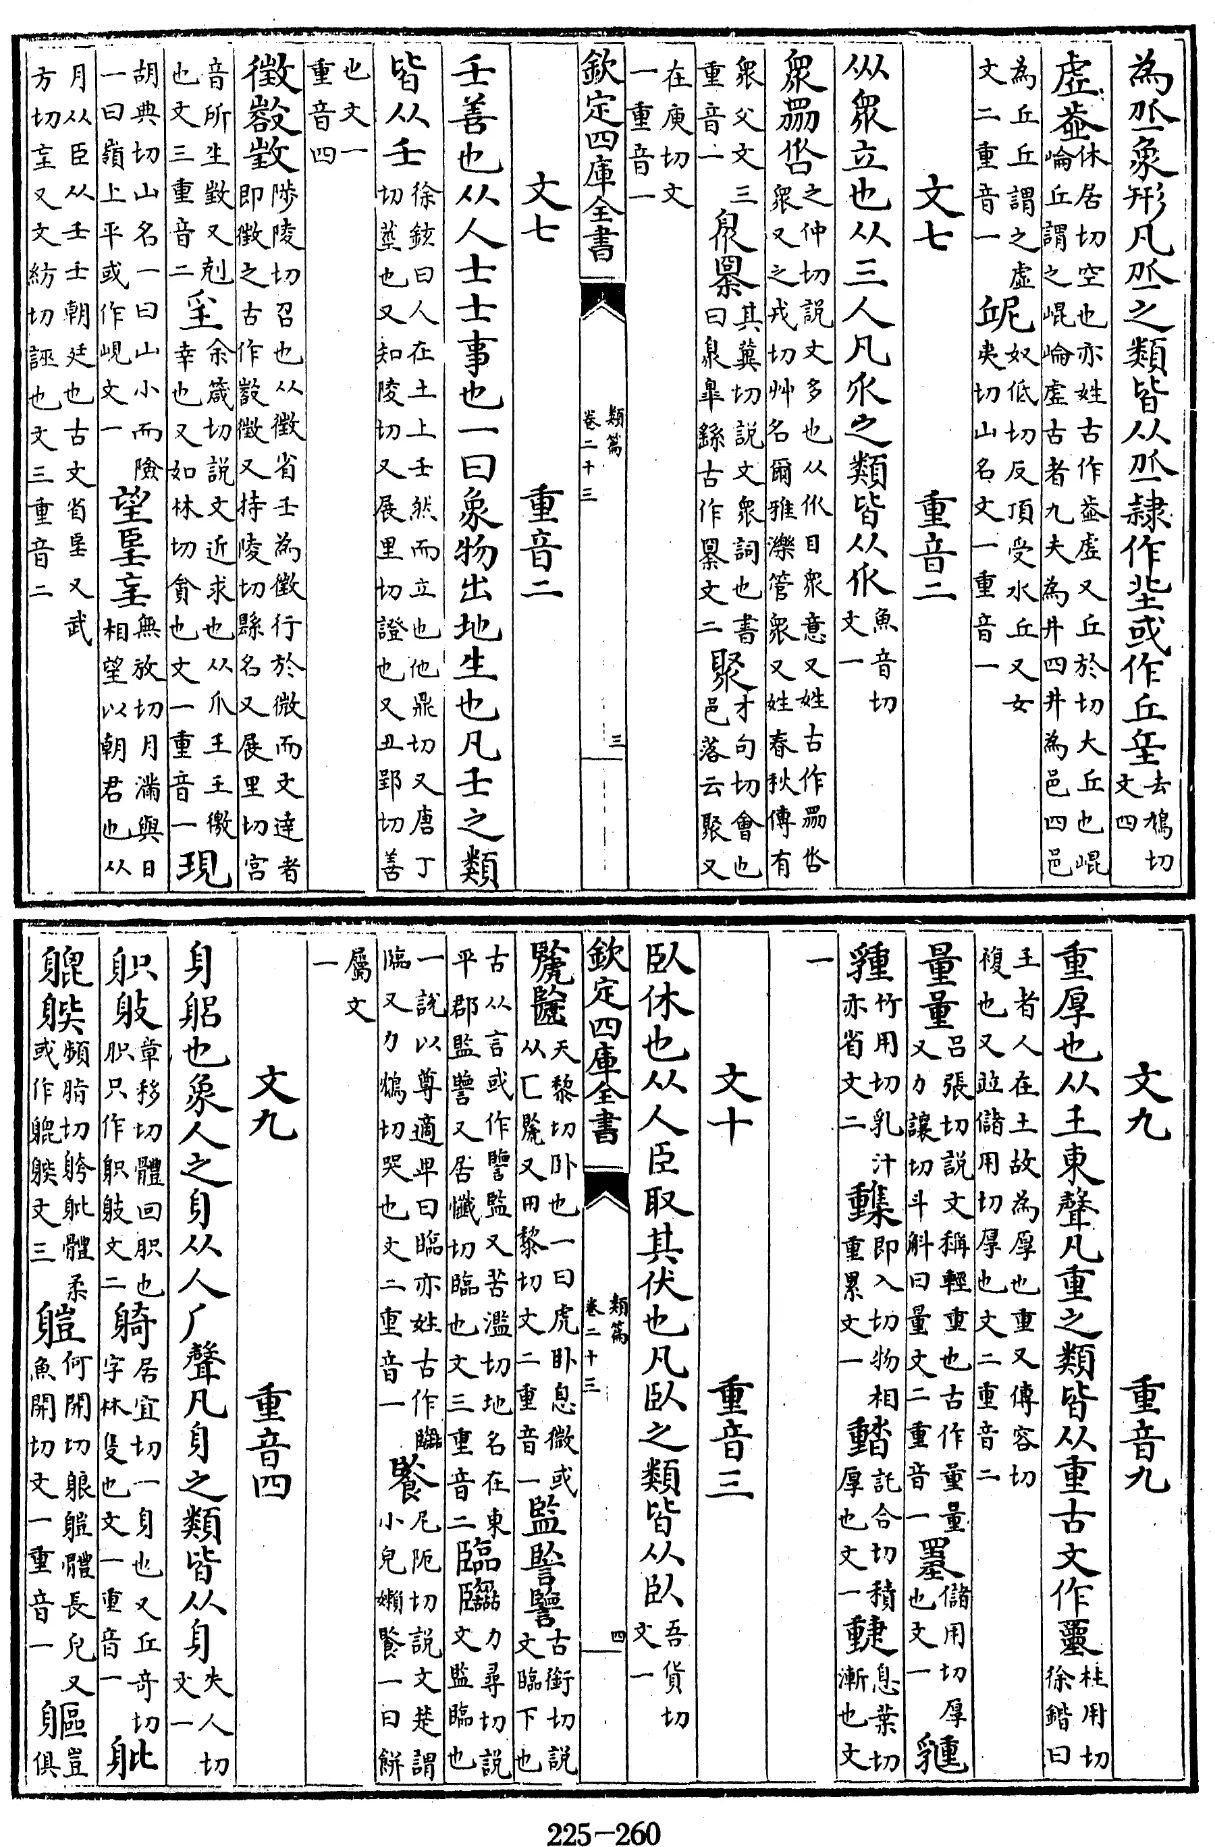 為丠象形凡丠之類皆从丠隷作㐀或作丘坵去鳩切文四
虛休居切空也亦姓古作虛又丘於切大丘也崐崘丘謂之崐崘虛古者九夫為井四井為邑四邑
為丘丘謂之虛文二重音一 屔奴低切反頂受水丘又女夷切山名文一重音一
文七 重音二
㐺衆立也从三人凡㐺之類皆从㐺魚音切文一
衆之仲切説文多也从㐺目衆意又姓古作衆又之戎切艸名爾雅濼管衆又姓春秋傳有
衆父文三重音一 臮其冀切説文衆詞也書曰臮臯繇古作文二 聚才句切會也邑落云聚又
在庾切文一重音一
欽定四庫全書 類篇 卷二十三 三
文七 重音二
𡈼善也从人士士事也一曰象物出地生也凡𡈼之類
皆从𡈼徐鉉曰人在土上𡈼然而立也他鼎切又唐丁切䔲也又知陵切又展里切證也又丑郢切善
也文一重音四
徵陟陵切召也从微省𡈼為徵行於微而文達者即徵之古作徵又持陵切縣名又展里切宫
音所生又剋也文三重音二 㸒余箴切説文近求也从爪𡈼𡈼徼幸也又如林切貪也文一重音一 現
胡典切山名一曰山小而險一曰嶺上平或作峴文一 望朢无放切月滿與日相望以朝君也从
月从臣从𡈼𡈼朝廷也古文省朢又武方切又文紡切誣也文三重音二
文九 重音九
重厚也从𡈼東聲凡重之類皆从重古文作柱用切徐鍇曰
𡈼者人在土故為厚也重又傳容切複也又儲用切厚也文二重音二
量呂張切説文稱輕重也古作量又力讓切斗斛曰量文二重音一 儲用切厚也文一
竹用切乳汁亦省文二 即入切物相重累文一 託合切積厚也文一 息葉切漸也文
一
文十 重音三
臥休也从人臣取其伏也凡臥之類皆从臥吾貨切文一
欽定四庫全書 類篇 卷二十三 四
天黎切卧也一曰虎卧息微或从匸又田黎切文二重音一 監古銜切説文臨下也
古从言或作監又苦濫切地名在東平郡監又居懺切臨也文三重音二 臨力尋切説文監臨也
一説以尊適卑曰臨亦姓古作臨又力鴆切哭也文二重音一 尼阨切説文楚謂小兒嬾一曰餅
屬文一
文九 重音四
身躳也象人之身从人𠂆聲凡身之類皆从身失人切文一
軄章移切體四胑也胑只作軄文二 躸居宜切一身也又丘奇切字林隻也文一重音一 䠋
頻脂切躬䠋體柔或作文三 何開切躴體長皃又魚開切文一重音一 軀豈俱
225-260